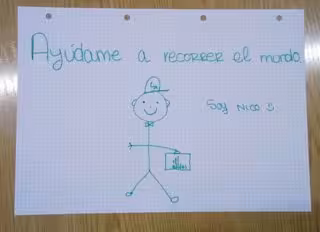 Ayúdame a recorrer el mundo.
Soy Nico S.